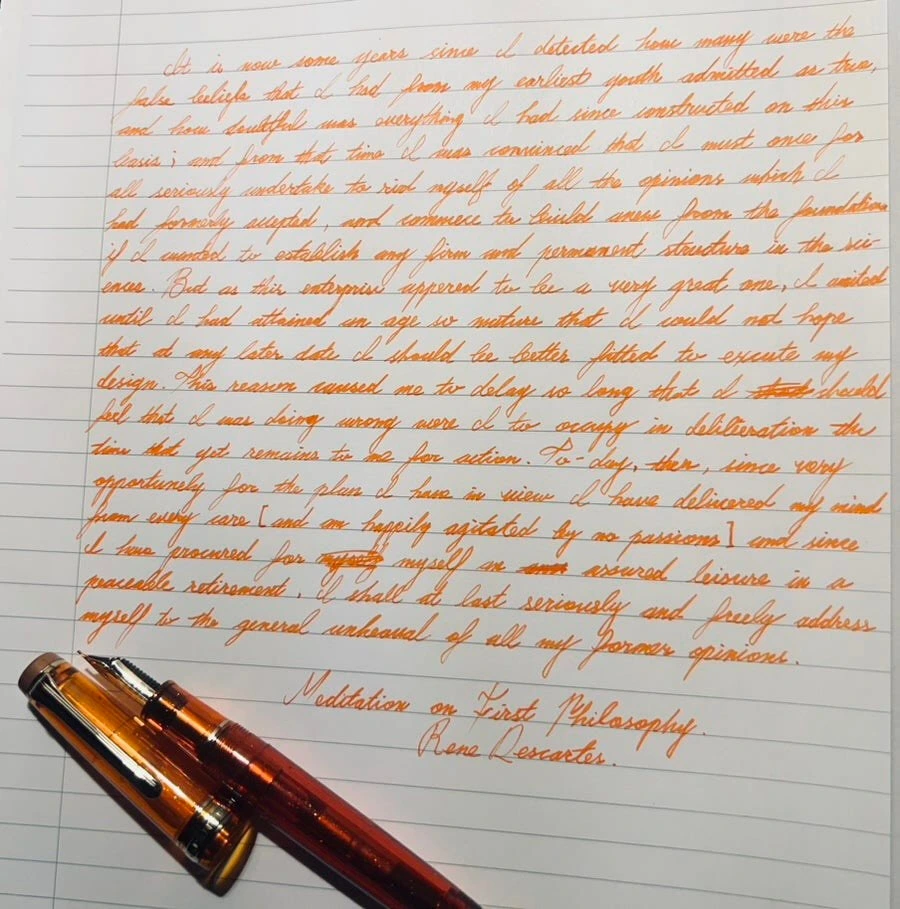 It is now some years since I detected how many were the
false beliefs that I had from my earliest youth admitted as true,
and how doubtful was everything I had since constructed on this
basis; and from that time I was convinced that I must once for
all seriously undertake to rid myself of all the opinions which I
had formerly accepted, and commence to build anew from the foundation
if I wanted to establish any firm and permanent structure in the sci-
ences. But as this enterprise appered to be a very great one, I waited
until I had attained an age so mature that I could not hope
that at any later date I should be better fitted to execute my
design. This reason caused me to delay so long that I should
feel that I was doing wrong were I to occupy in deliberation the
time that yet remains to me for action. To-day, then, since very
opportunely for the plan I have in view I have delivered my mind
from every care [and am happily agitated by no passions] and since
I have procured for myself an assured leisure in a
peaceable retirement, I shall at last seriously and freely address
myself to the general upheaval of all my former opinions.
Meditation on First Philosophy.
Rene Descartes.